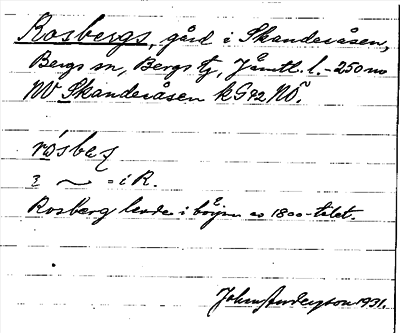 Rosbergs, gård i Skanderåsen,
Bergs sn, Bergs tg, Jämtl. l. – 250 m
NV Skanderåsen kG 92 NO.
rósbeʒ
ʒ ~ = i R.
Rosberg levde i början av 1800-talet.
John Anderson 1931.